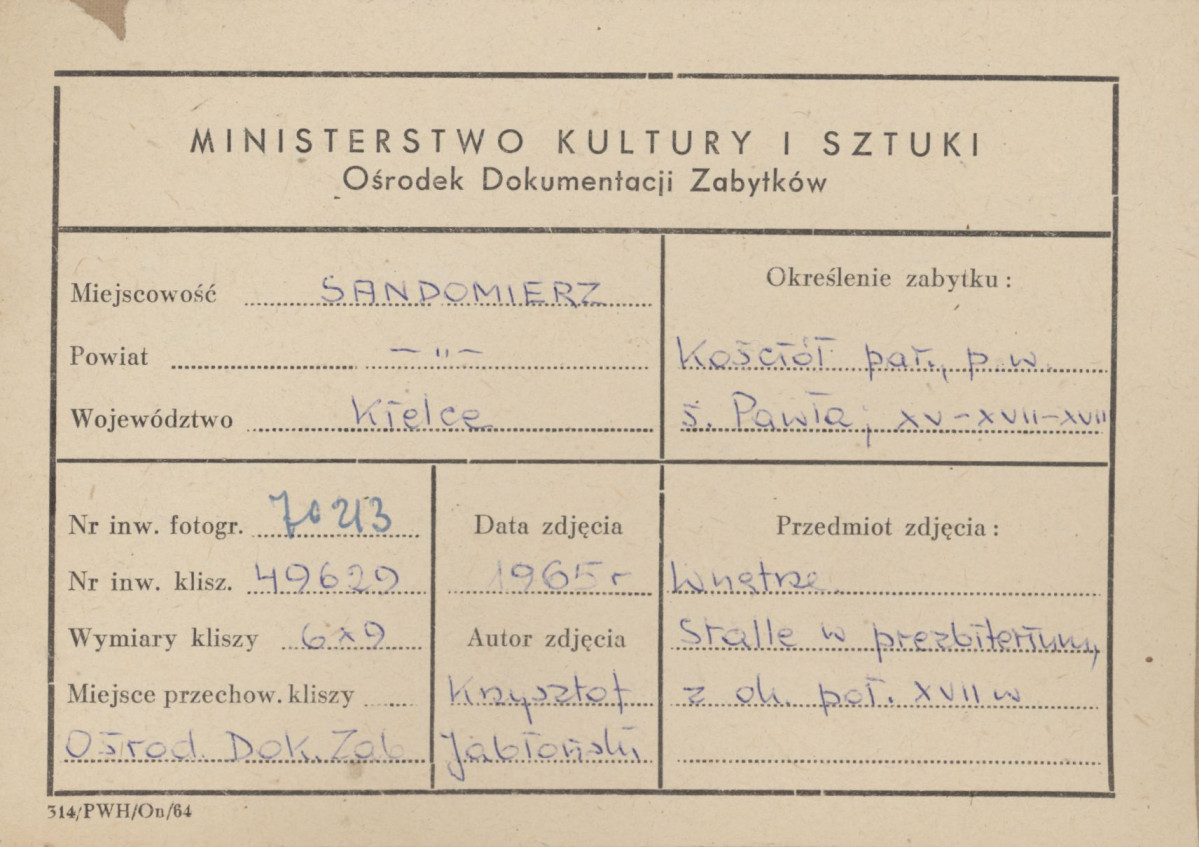 MINISTERSTWO KULTURY I SZTUKI
Ośrodek Dokumentacji Zabytków
Miejscowość SANDOMIERZ
Powiat — " —
Województwo Kielce
Określenie zabytku:
Kościół par., p.w.
ś. Pawła; XV-XVII-XVIII
Nr inw. fotogr. 70213
Nr inw. klisz. 49629
Wymiary kliszy 6x9
Miejsce przechow. kliszy
Ośrod. Dok. Zab
Data zdjęcia
1965 r
Autor zdjęcia
Krzysztof
Jabłoński
Przedmiot zdjęcia:
Wnętrze.
Stalle w prezbiterium,
z ok. poł. XVII w
314/PWH/On/64